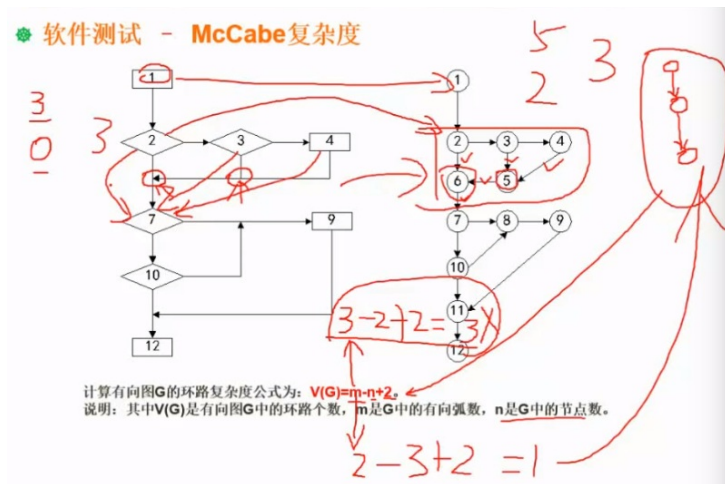 软件测试 - McCabe复杂度
5
2
3
3
0
3
1
2
3
4
7
9
10
12
1
2
3
4
6
5
7
8
9
10
11
12
3-2+2=3X
计算有向图G的环路复杂度公式为：V(G)=m-n+2。
说明：其中V(G)是有向图G中的环路个数，m是G中的有向弧数，n是G中的节点数。
2-3+2=1